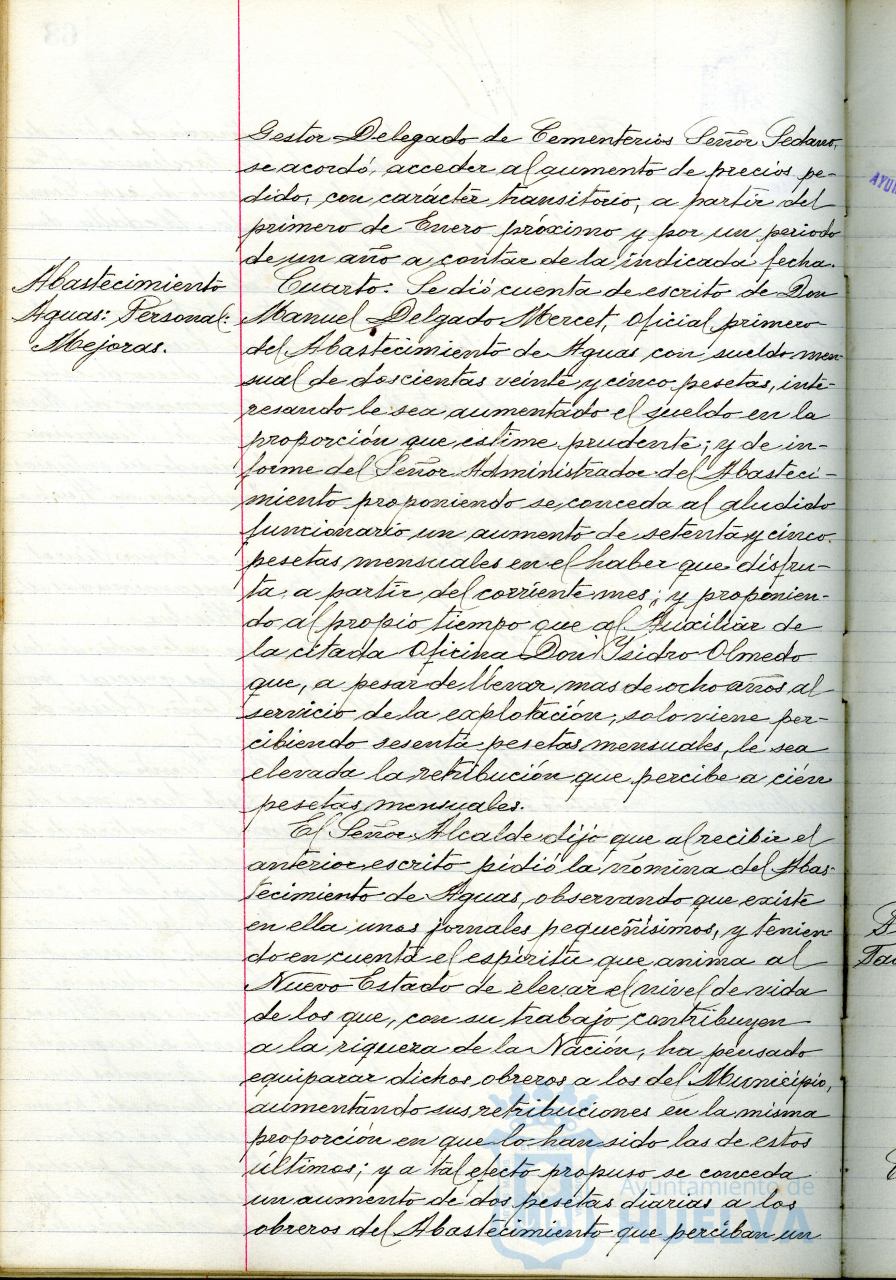 Gestor Delegado de Cementerios Señor Sedano,
se acordó, acceder al aumento de precios pe-
dido, con carácter transitorio, a partir del
primero de Enero próximo y por un periodo
de un año a contar de la indicada fecha.
Abastecimiento
Aguas: Personal:
Mejoras.
Cuarto: Se dió cuenta de escrito de Don
Manuel Delgado Mercet, Oficial primero
del Abastecimiento de Aguas, con sueldo men-
sual de doscientas veinte y cinco pesetas, inte-
resando le sea aumentado el sueldo en la
proporción que estime prudente; y de in-
forme del Señor Administrador del Abasteci-
miento proponiendo se conceda al aludido
funcionario un aumento de setenta y cinco
pesetas mensuales en el haber que disfru-
ta, a partir del corriente mes; y proponien-
do al propio tiempo que al Auxiliar de
la citada Oficina Don Ysidro Olmedo
que, a pesar de llevar mas de ocho años al
servicio de la explotación, solo viene per-
cibiendo sesenta pesetas mensuales, le sea
elevada la retribución que percibe a cién
pesetas mensuales.
El Señor Alcalde dijo que al recibir el
anterior escrito pidió la nómina del Abas-
tecimiento de Aguas, observando que existe
en ella unos jornales pequeñísimos, y tenien-
do en cuenta el espíritu que anima al
Nuevo Estado de elevar el nivel de vida
de los que, con su trabajo contribuyen
a la riqueza de la Nación, ha pensado
equiparar dichos obreros a los del Municipio,
aumentando sus retribuciones en la misma
proporción en que lo han sido las de estos
últimos; y a tal efecto propuso se conceda
un aumento de dos pesetas diarias a los
obreros del Abastecimiento que perciban un
Ayuntamiento de
HUELVA